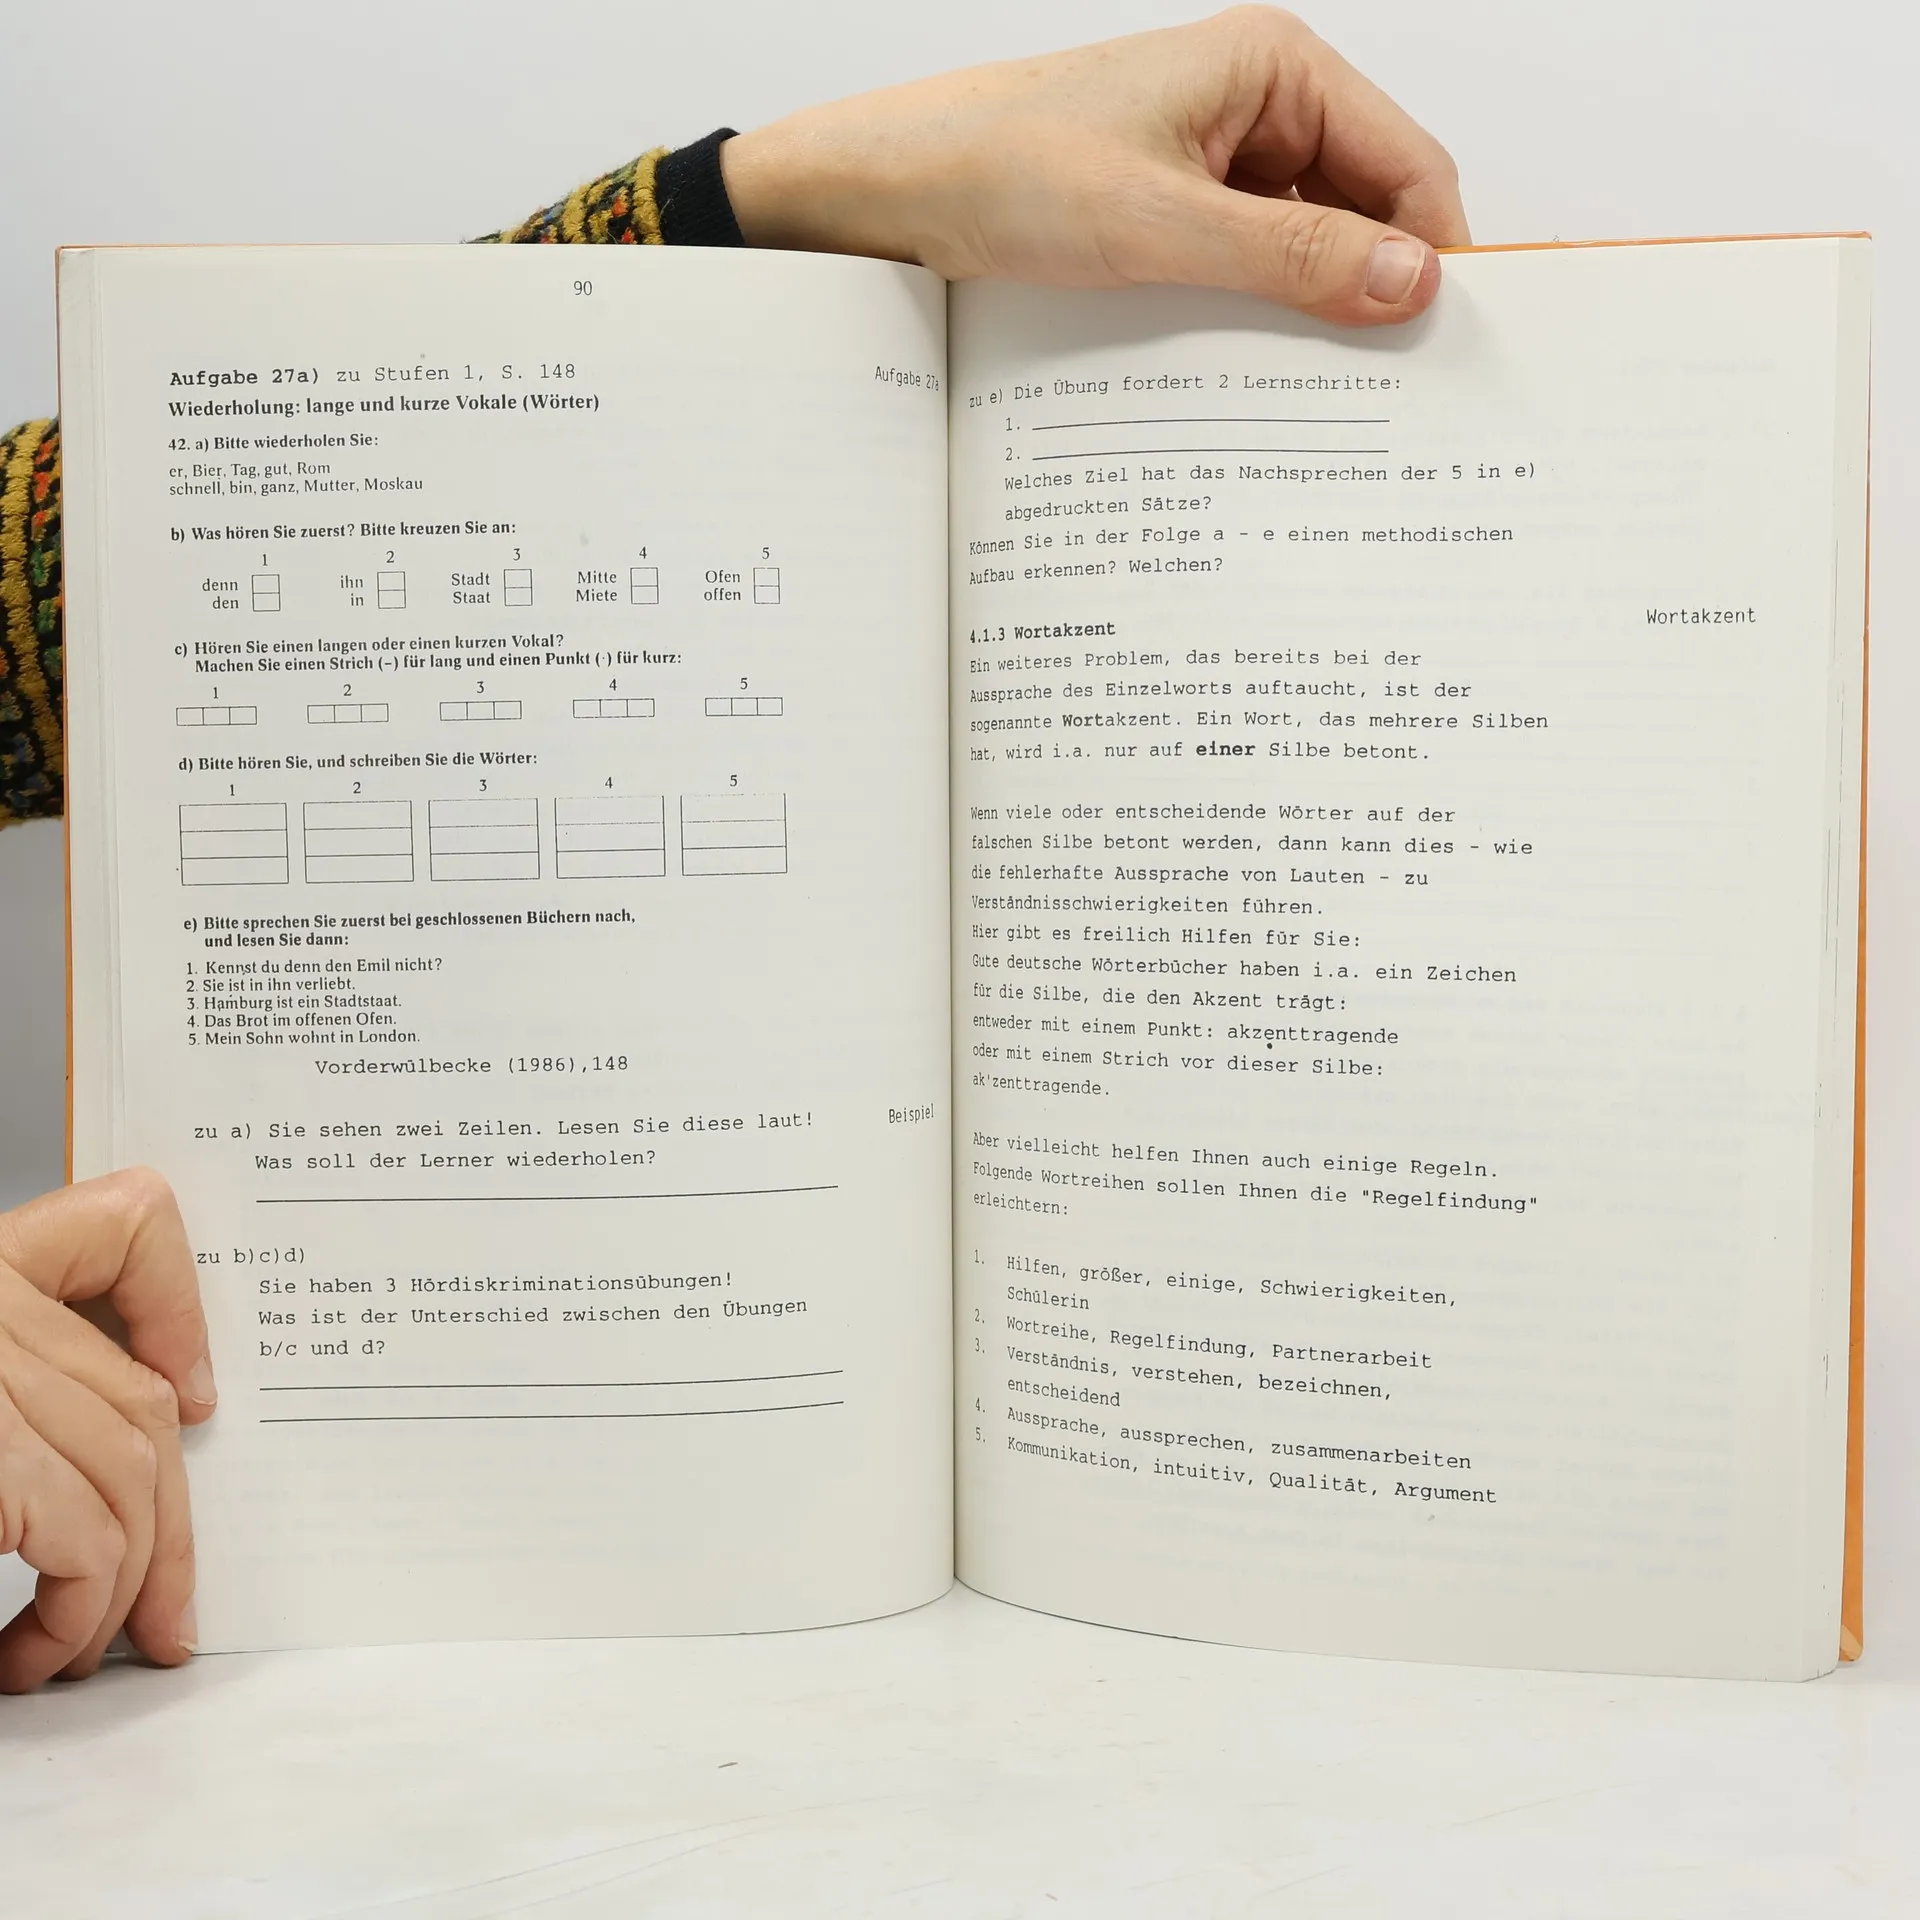 90
Aufgabe 27a) zu Stufen 1, S. 148
Aufgabe 27a
Wiederholung: lange und kurze Vokale (Wörter)
42. a) Bitte wiederholen Sie:
er, Bier, Tag, gut, Rom
schnell, bin, ganz, Mutter, Moskau
b) Was hören Sie zuerst? Bitte kreuzen Sie an:
1 2 3 4 5
denn ihn Stadt Mitte Ofen
den in Staat Miete offen
c) Hören Sie einen langen oder einen kurzen Vokal?
Machen Sie einen Strich (–) für lang und einen Punkt (·) für kurz:
1 2 3 4 5
d) Bitte hören Sie, und schreiben Sie die Wörter:
1 2 3 4 5
e) Bitte sprechen Sie zuerst bei geschlossenen Büchern nach,
und lesen Sie dann:
1. Kennst du denn den Emil nicht?
2. Sie ist in ihn verliebt.
3. Hamburg ist ein Stadtstaat.
4. Das Brot im offenen Ofen.
5. Mein Sohn wohnt in London.
Vorderwülbecke (1986),148
zu a) Sie sehen zwei Zeilen. Lesen Sie diese laut!
Beispiel
Was soll der Lerner wiederholen?
zu b)c)d)
Sie haben 3 Hördiskriminationsübungen!
Was ist der Unterschied zwischen den Übungen
b/c und d?
zu e) Die Übung fordert 2 Lernschritte:
1.
2.
Welches Ziel hat das Nachsprechen der 5 in e)
abgedruckten Sätze?
Können Sie in der Folge a - e einen methodischen
Aufbau erkennen? Welchen?
4.1.3 Wortakzent
Wortakzent
Ein weiteres Problem, das bereits bei der
Aussprache des Einzelworts auftaucht, ist der
sogenannte Wortakzent. Ein Wort, das mehrere Silben
hat, wird i.a. nur auf einer Silbe betont.
Wenn viele oder entscheidende Wörter auf der
falschen Silbe betont werden, dann kann dies - wie
die fehlerhafte Aussprache von Lauten - zu
Verständnisschwierigkeiten führen.
Hier gibt es freilich Hilfen für Sie:
Gute deutsche Wörterbücher haben i.a. ein Zeichen
für die Silbe, die den Akzent trägt:
entweder mit einem Punkt: akzẹnttragende
oder mit einem Strich vor dieser Silbe:
ak'zenttragende.
Aber vielleicht helfen Ihnen auch einige Regeln.
Folgende Wortreihen sollen Ihnen die "Regelfindung"
erleichtern:
1. Hilfen, größer, einige, Schwierigkeiten,
Schülerin
2. Wortreihe, Regelfindung, Partnerarbeit
3. Verständnis, verstehen, bezeichnen,
entscheidend
4. Aussprache, aussprechen, zusammenarbeiten
5. Kommunikation, intuitiv, Qualität, Argument